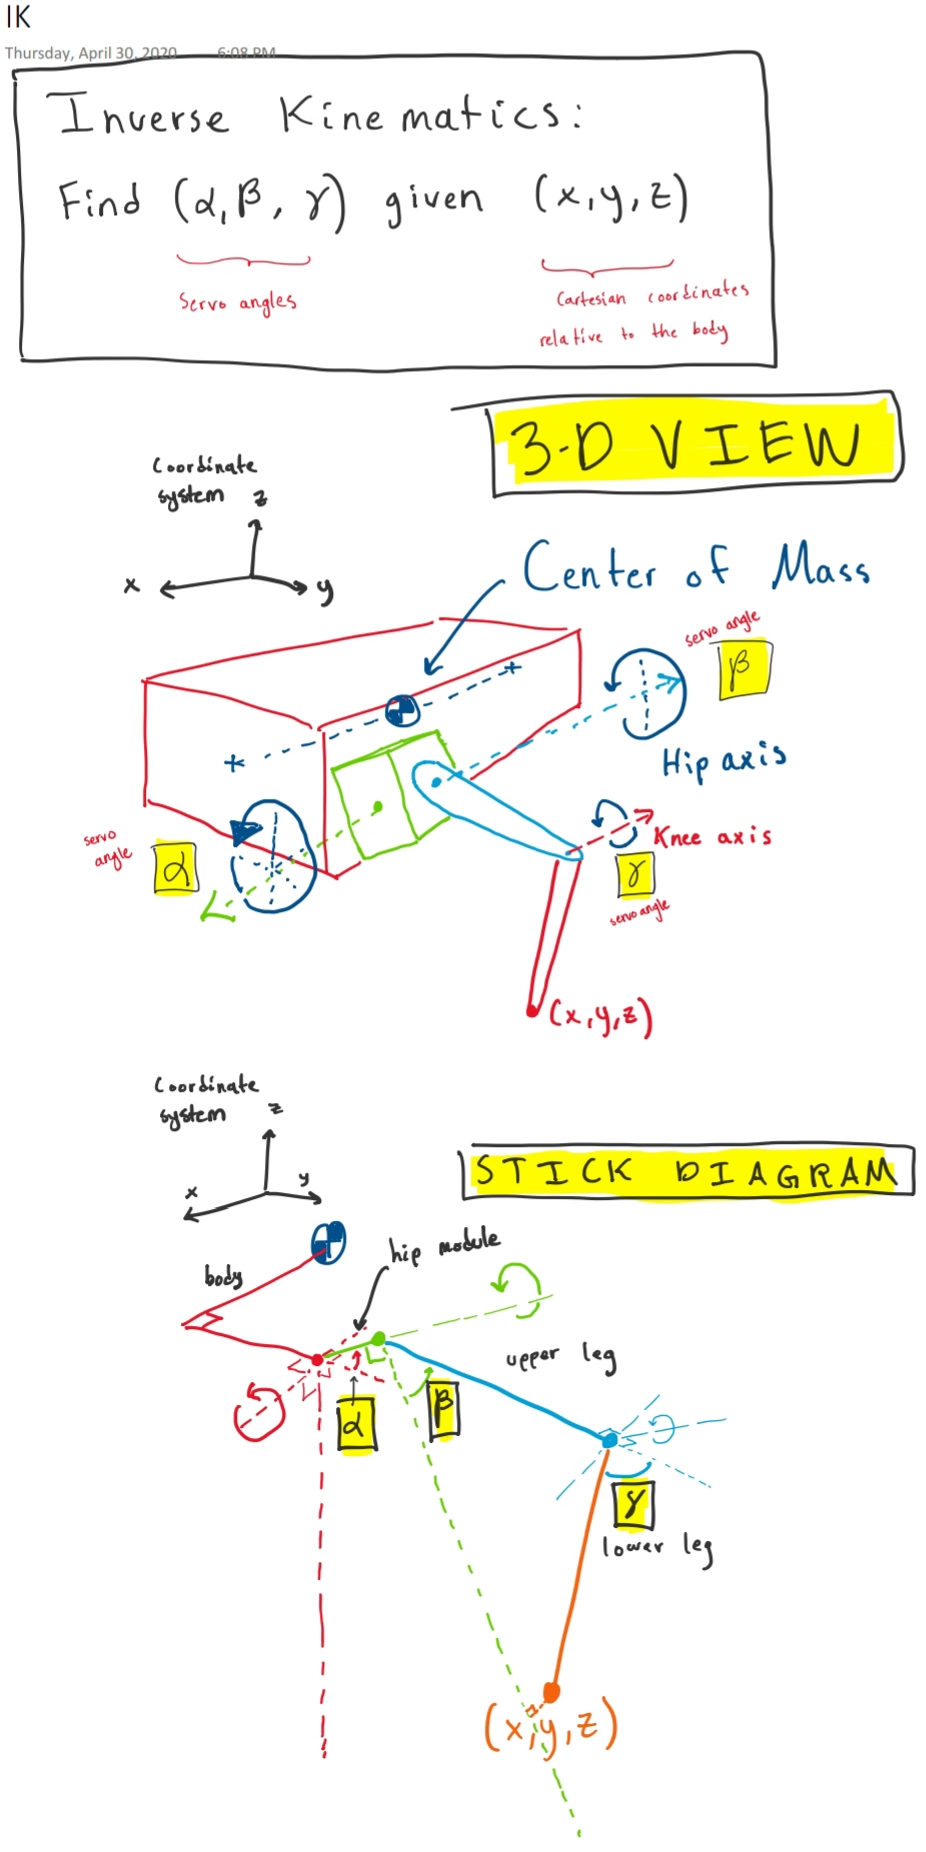 IK
Thursday, April 30, 2020 6:08 PM
Inverse Kinematics:
Find (α, β, γ) given (x, y, z)
Servo angles
Cartesian coordinates
relative to the body
3-D VIEW
Coordinate
system
z
x
y
Center of Mass
servo angle
β
Hip axis
servo
angle
α
Knee axis
γ
servo angle
(x, y, z)
Coordinate
system
z
x
y
STICK DIAGRAM
hip module
body
upper leg
α
β
γ
lower leg
(x, y, z)